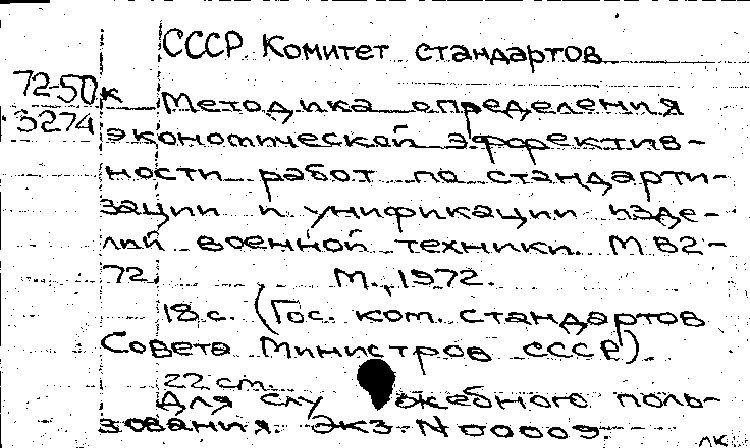 СССР Комитет стандартов
72-50к
3274
Методика определения
экономической эффектив-
ности работ по стандарти-
зации и унификации изде-
лий военной техники. МВ2-
72. М., 1972.
18 с. (Гос. ком. стандартов
Совета Министров СССР).
22 cm.
Для служебного поль-
зования. Экз. N 00009.
лк